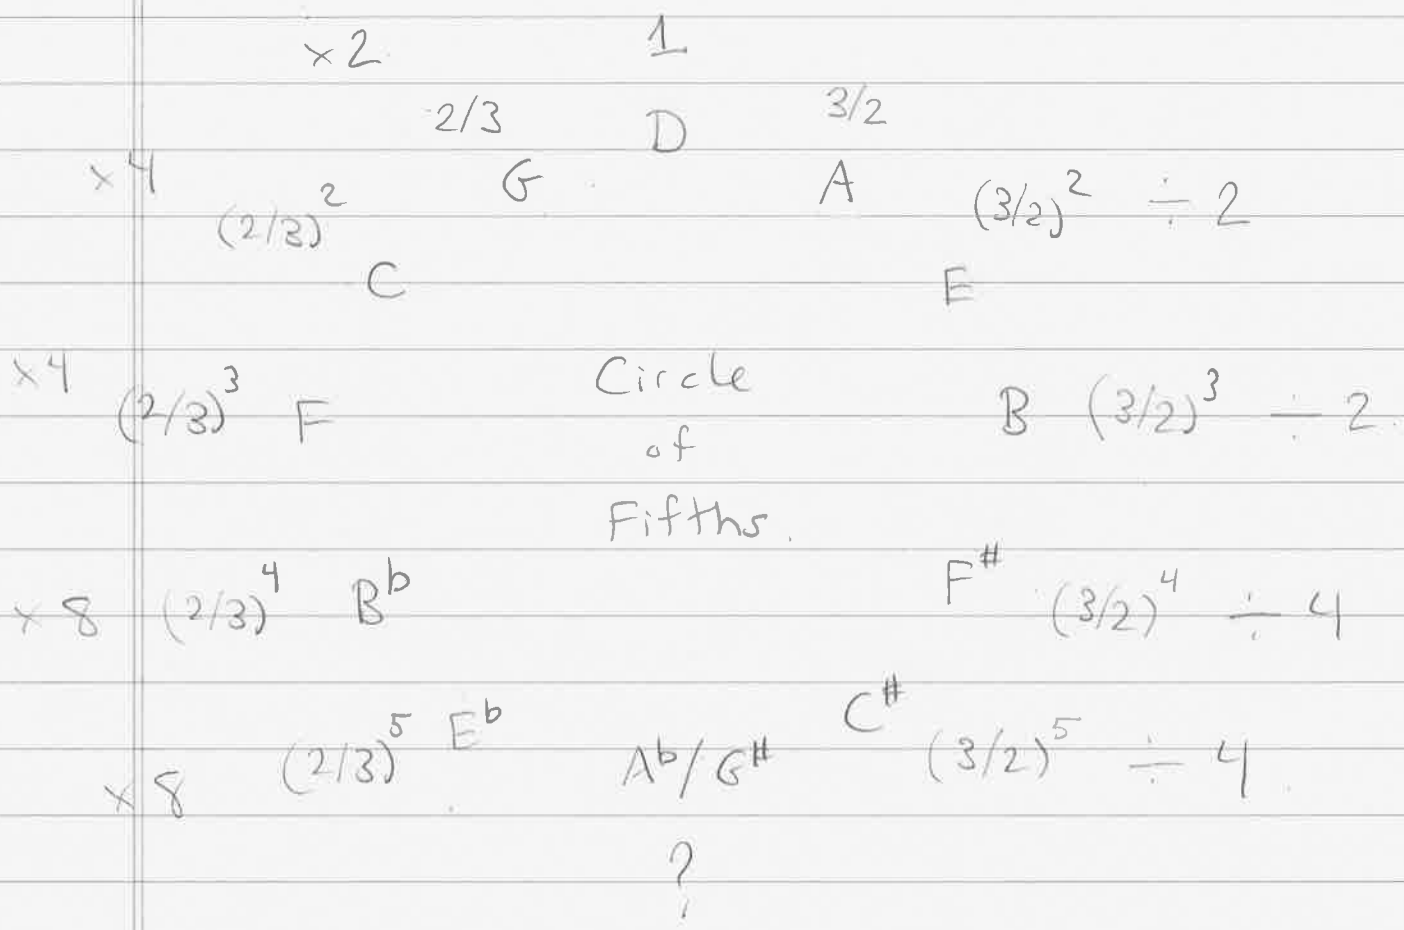 ×2 1
2/3 D 3/2
×4 (2/3)² G A (3/2)² ÷ 2
C E
×4 (2/3)³ F Circle B (3/2)³ ÷ 2
of
Fifths.
×8 (2/3)⁴ Bb F# (3/2)⁴ ÷ 4
×8 (2/3)⁵ Eb Ab/G# C# (3/2)⁵ ÷ 4
?